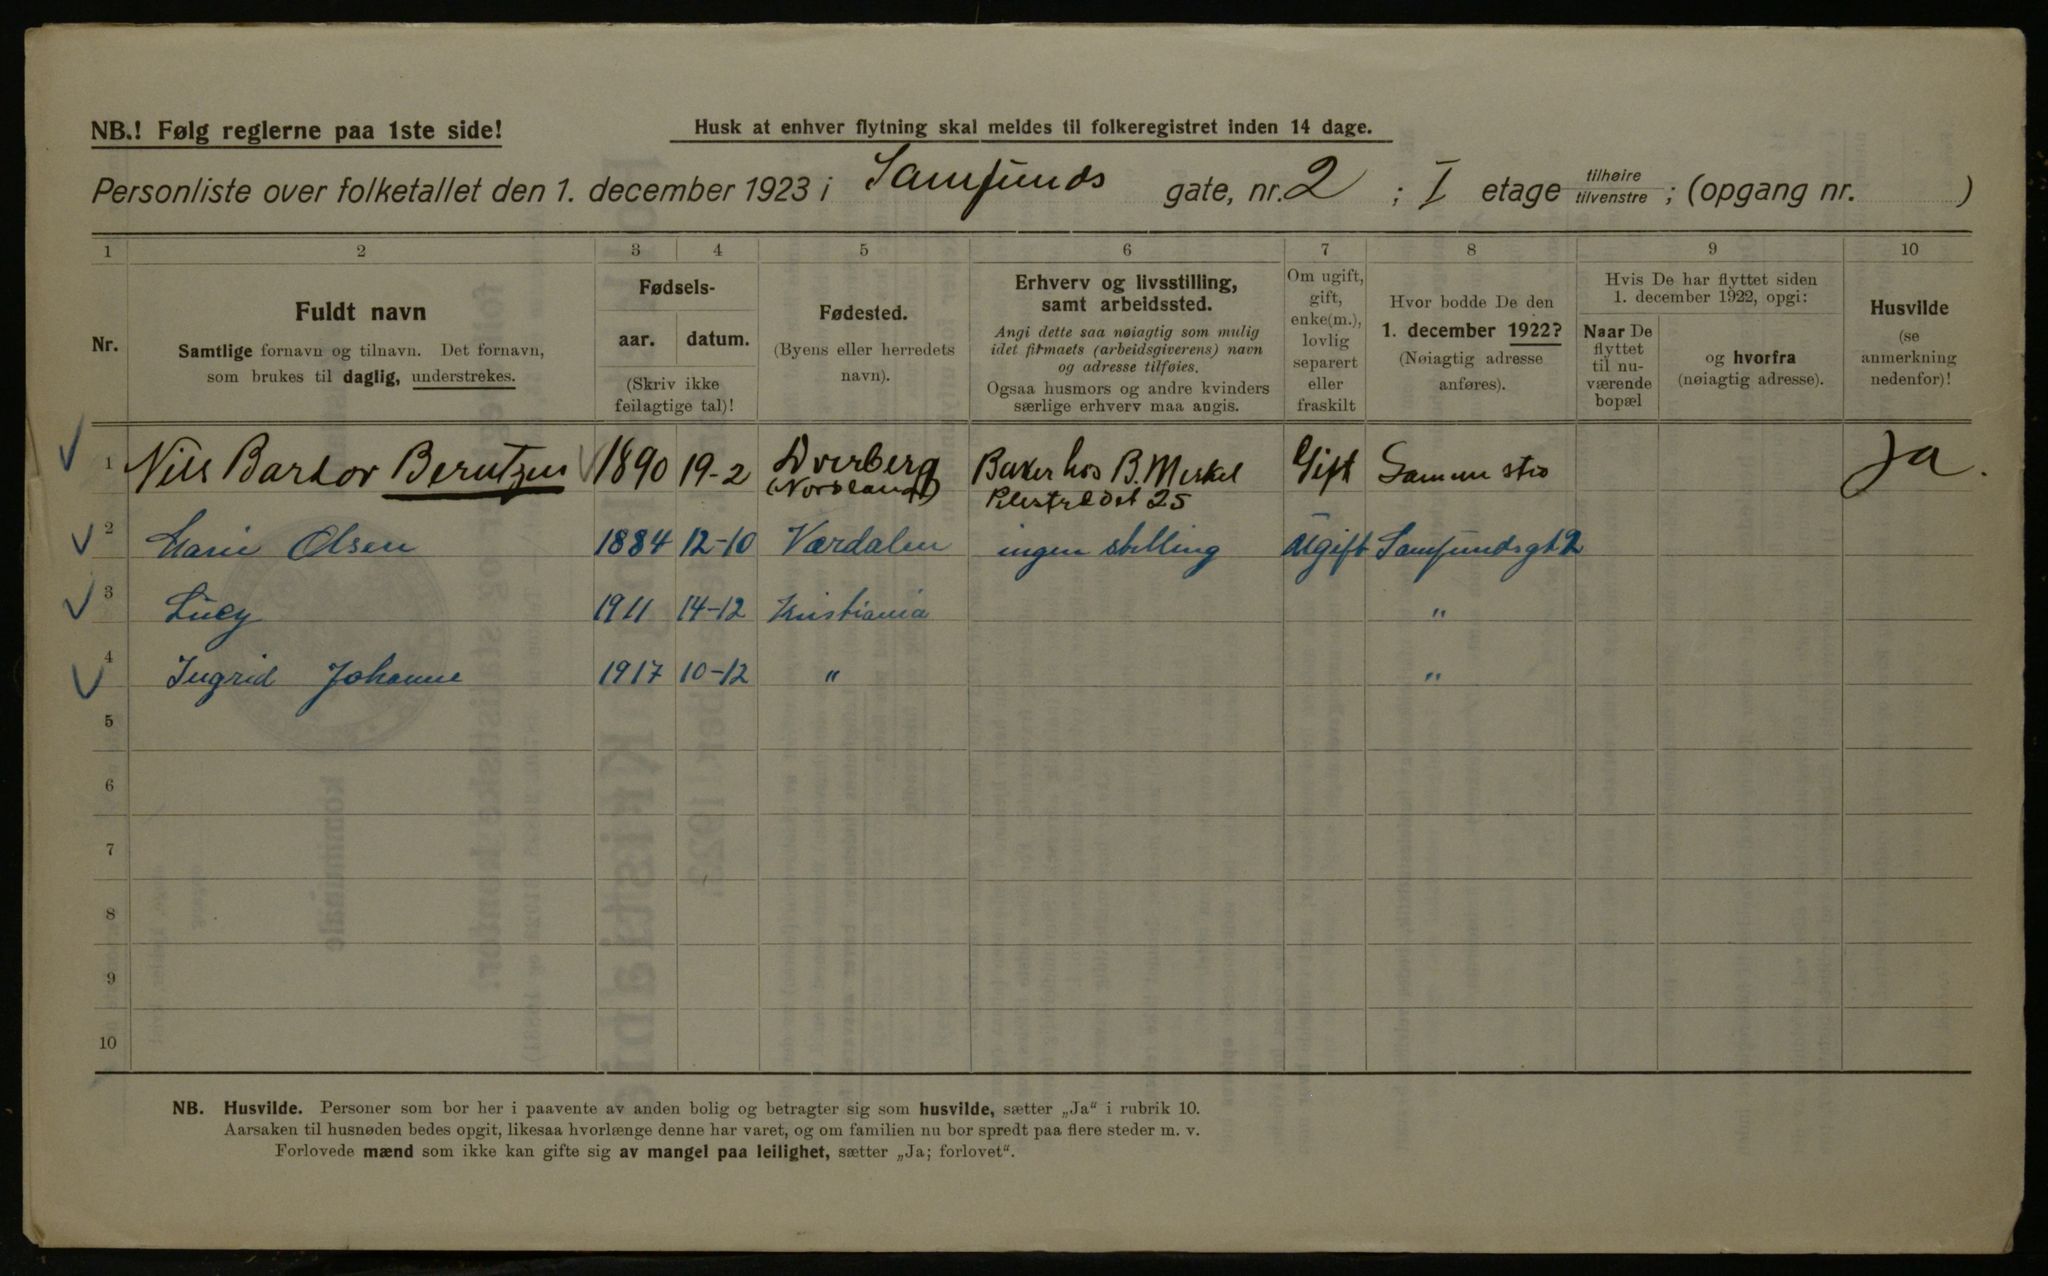 NB.! Følg reglerne paa 1ste side!
Husk at enhver flytning skal meldes til folkeregistret inden 14 dage.
Personliste over folketallet den 1. december 1923 i Samfunds gate, nr. 2 ; I etage tilhøire tilvenstre ; (opgang nr. )
1 2 3 4 5 6 7 8 9 10
Nr.
Fuldt navn
Samtlige fornavn og tilnavn. Det fornavn,
som brukes til daglig, understrekes.
Fødsels-
aar. datum.
(Skriv ikke
feilagtige tal)!
Fødested.
(Byens eller herredets
navn).
Erhverv og livsstilling,
samt arbeidssted.
Angi dette saa nøiagtig som mulig
idet firmaets (arbeidsgiverens) navn
og adresse tilføies.
Ogsaa husmors og andre kvinders
særlige erhverv maa angis.
Om ugift,
gift,
enke(m.),
lovlig
separert
eller
fraskilt
Hvor bodde De den
1. december 1922?
(Nøiagtig adresse
anføres).
Hvis De har flyttet siden
1. december 1922, opgi:
Naar De
flyttet
til nu-
værende
bopæl
og hvorfra
(nøiagtig adresse).
Husvilde
(se
anmerkning
nedenfor)!
1 Nils Bardor Berntzen 1890 19-2 Dverberg (Nordland) Baker hos B. Merkel Pilestrædet 25 Gift Samme sted Ja.
2 Marie Olsen 1884 12-10 Værdalen ingen stilling Ugift Samfundsgt 2
3 Lucy 1911 14-12 Kristiania "
4 Ingrid Johanne 1917 10-12 " "
5
6
7
8
9
10
NB. Husvilde. Personer som bor her i paavente av anden bolig og betragter sig som husvilde, sætter „Ja“ i rubrik 10.
Aarsaken til husnøden bedes opgit, likesaa hvorlænge denne har varet, og om familien nu bor spredt paa flere steder m. v.
Forlovede mænd som ikke kan gifte sig av mangel paa leilighet, sætter „Ja; forlovet“.